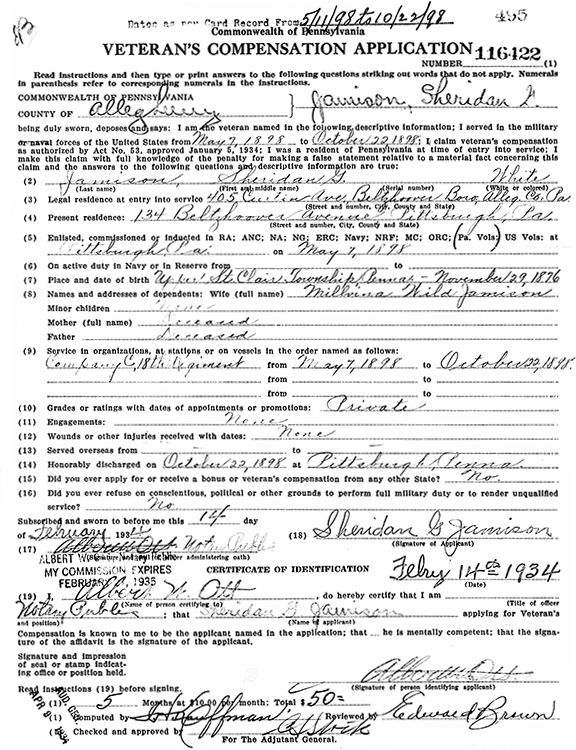 Dates as per Card Record From 5/11/98 to 10/22/98 495
Commonwealth of Pennsylvania
VETERAN'S COMPENSATION APPLICATION 116422
NUMBER (1)
Read instructions and then type or print answers to the following questions striking out words that do not apply. Numerals
in parenthesis refer to corresponding numerals in the instructions.
COMMONWEALTH OF PENNSYLVANIA
COUNTY OF Allegheny } Jamison, Sheridan G.
being duly sworn, deposes and says: I am the veteran named in the following descriptive information; I served in the military
or naval forces of the United States from May 7, 1898 to October 22, 1898; I claim veteran's compensation
as authorized by Act No. 53, approved January 5, 1934; I was a resident of Pennsylvania at time of entry into service; I
make this claim with full knowledge of the penalty for making a false statement relative to a material fact concerning this
claim and the answers to the following questions and descriptive information are true:
(2) Jamison, Sheridan G. White
(Last name) (First and middle name) (Serial number) (White or colored)
(3) Legal residence at entry into service 405 Curtin Ave, Beltzhoover Boro, Alleg. Co. Pa.
(Street and number, City, County and State)
(4) Present residence: 134 Beltzhoover Avenue Pittsburgh, Pa.
(Street and number, City, County and State)
(5) Enlisted, commissioned or inducted in RA; ANC; NA; NG; ERC; Navy; NRF; MC; ORC; (Pa. Vols;) US Vols: at
Pittsburgh, Pa. on May 7, 1898
(6) On active duty in Navy or in Reserve from to
(7) Place and date of birth Upper St. Clair Township, Penna. - November 29, 1876
(8) Names and addresses of dependents: Wife (full name) Millvina Wild Jamison
Minor children None
Mother (full name) Deceased
Father Deceased
(9) Service in organizations, at stations or on vessels in the order named as follows:
Company C, 18th Regiment from May 7, 1898 to October 22, 1898.
from to
from to
(10) Grades or ratings with dates of appointments or promotions: Private
(11) Engagements: None
(12) Wounds or other injuries received with dates: None
(13) Served overseas from to
(14) Honorably discharged on October 22, 1898 at Pittsburgh, Penna.
(15) Did you ever apply for or receive a bonus or veteran's compensation from any other State? No.
(16) Did you ever refuse on conscientious, political or other grounds to perform full military duty or to render unqualified
service? No
Subscribed and sworn to before me this 14 day
of February 1934 (18) Sheridan G. Jamison
(17) Albert W. Ott Notary Public (Signature of Applicant)
ALBERT W.
MY COMMISSION EXPIRES
FEBRUARY 1935
CERTIFICATE OF IDENTIFICATION Feby 14th 1934
(Date)
(19) I, Albert W. Ott, do hereby certify that I am
(Name of person certifying to) (Title of officer
Notary Public : that Sheridan G. Jamison applying for Veteran's
and position) (Name of applicant)
Compensation is known to me to be the applicant named in the application; that he is mentally competent; that the signa-
ture of the affidavit is the signature of the applicant.
Signature and impression
of seal or stamp indicat-
ing office or position held. Albert W. Ott
(Signature of person identifying applicant)
Read instructions (19) before signing.
(1) 5 Months at $10.00 per month: Total $50=
(1) Computed by Kauffman Reviewed by Edward Brown.
(1) Checked and approved by
For The Adjutant General.
AUD. GEN.
APR 9 1934